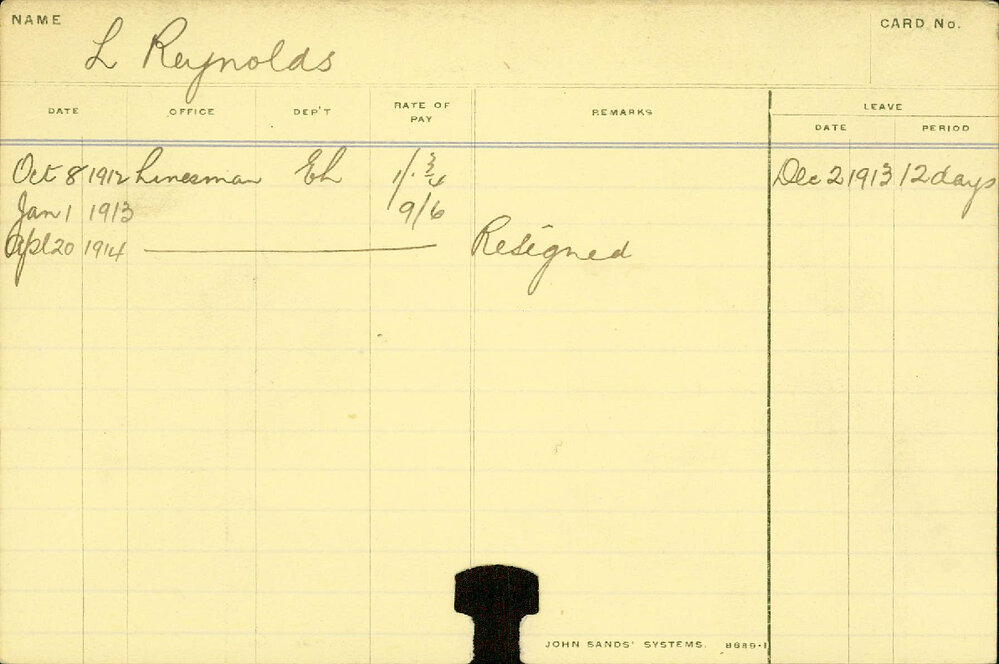 NAME
CARD No.
L Reynolds
DATE OFFICE DEP'T RATE OF PAY REMARKS LEAVE
DATE PERIOD
Oct 8 1912 Linesman El 1/. 3/4 Dec 2 1913 12 days
Jan 1 1913 9/6
Apl 20 1914 Resigned
JOHN SANDS' SYSTEMS.